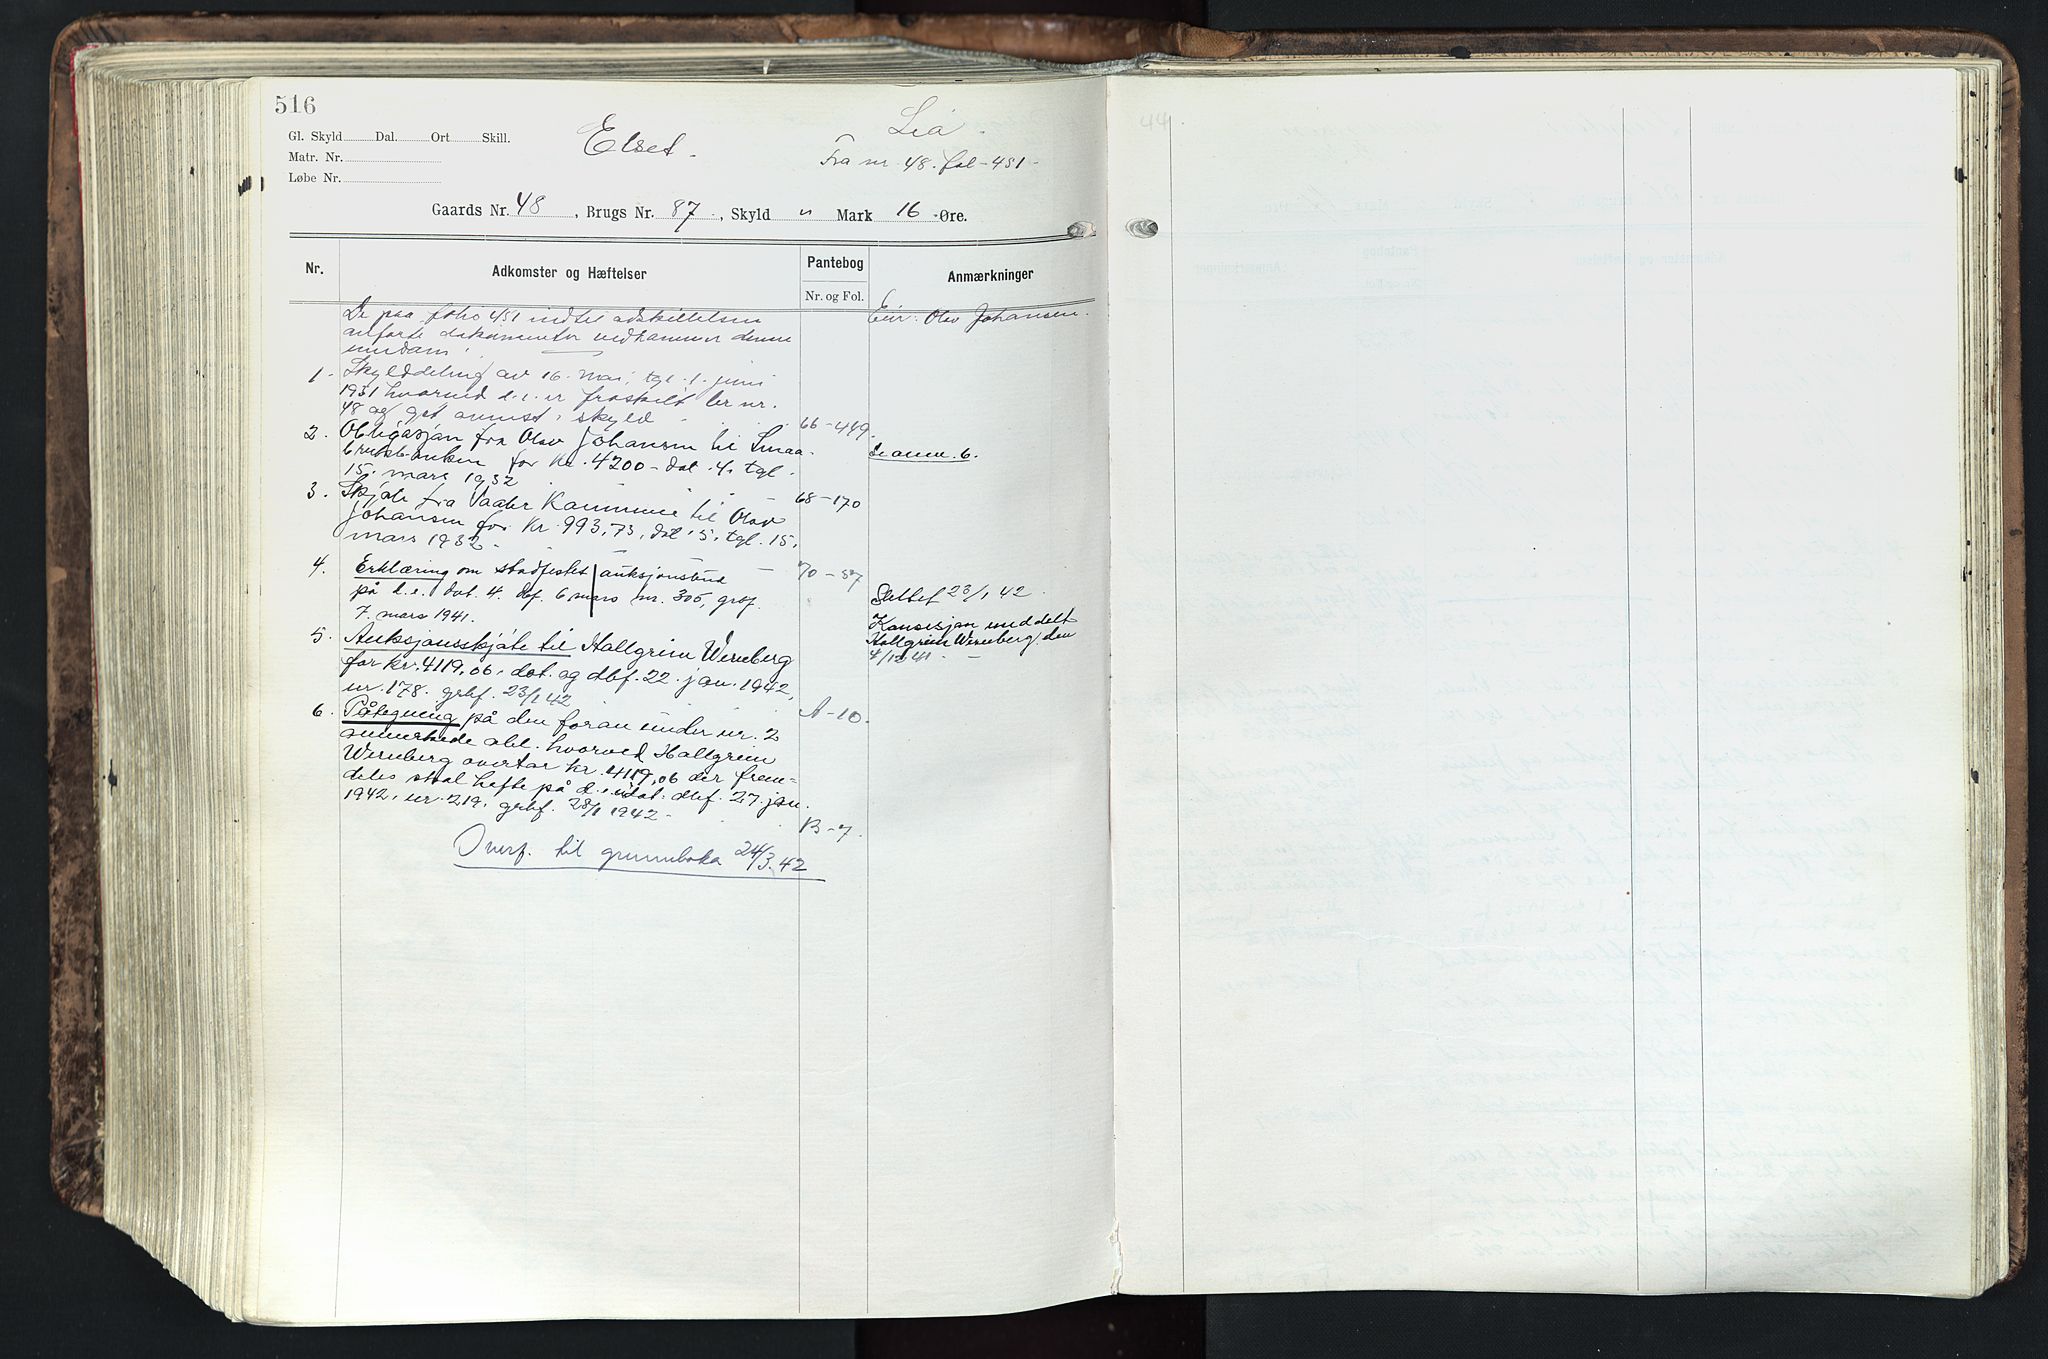 516
Gl. Skyld Dal. Ort Skill.
Matr. Nr.
Løbe Nr.
Elset.
Lia.
Fra nr. 48. fol-451-
Gaards Nr. 48, Brugs Nr. 87, Skyld " Mark 16 Øre.
Nr.
Adkomster og Hæftelser
Pantebog
Nr. og Fol.
Anmærkninger
De paa folio 451 indtil adskillelsen
anførte dokumenter vedkommer denne
eiendom.
Eier: Olav Johansen.
1. Skylddeling av 16. mai, tgl. 1. juni
1931 hvorved d.e. er fraskilt br.nr.
48 og git anmst. skyld
66-449.
2. Obligasjon fra Olav Johansen til Smaa-
brukbanken for Kr. 4200- dat. 4. tgl.
15. mars 1932
68-170
Se anm. 6.
3. Skjøte fra Vaaler Kommune til Olav
Johansen for Kr. 993,73, dat. 5. tgl. 15.
mars 1932.
70-57
4. Erklæring om stadfestet auksjonsbud
på d.e. dat. 4. dbf. 6. mars nr. 305, grbf.
7. mars 1941.
Slettet 23/1 42
5. Auksjonsskjøte til Hallgrim Wernberg
for kr. 4119,06, dat. og dbf. 22. jan. 1942,
nr. 178. grbf. 23/1 42
A-10.
Konsesjon meddelt
Hallgrim Wernberg den
4/12 41
6. Påtegning på den foran under nr. 2
anmerkede obl. hvorved Hallgrim
Wernberg overtar kr. 4119,06 der frem-
deles skal hefte på d.e. udat. dbf. 27. jan.
1942. nr. 219. grbf. 28/1 1942.
B-7.
Overf. til grunnboka 24/3.42
44.